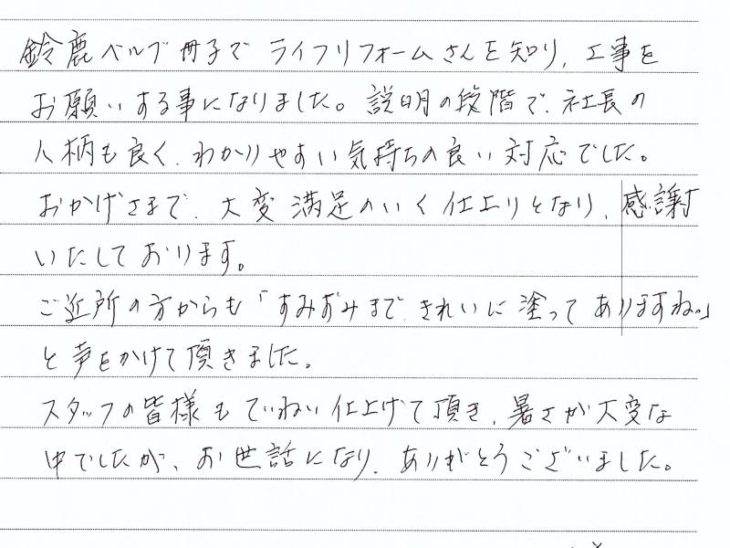 鈴鹿ベルブ冊子で ライフリフォームさんを知り、工事を
お願いする事になりました。説明の段階で、社長の
人柄も良く、わかりやすい気持ちの良い対応でした。
おかげさまで、大変満足のいく仕上りとなり、感謝
いたしております。
ご近所の方からも「すみずみまで きれいに塗って ありますね。」
と声をかけて頂きました。
スタッフの皆様もていねい仕上げて頂き、暑さが大変な
中でしたが、お世話になり、ありがとうございました。